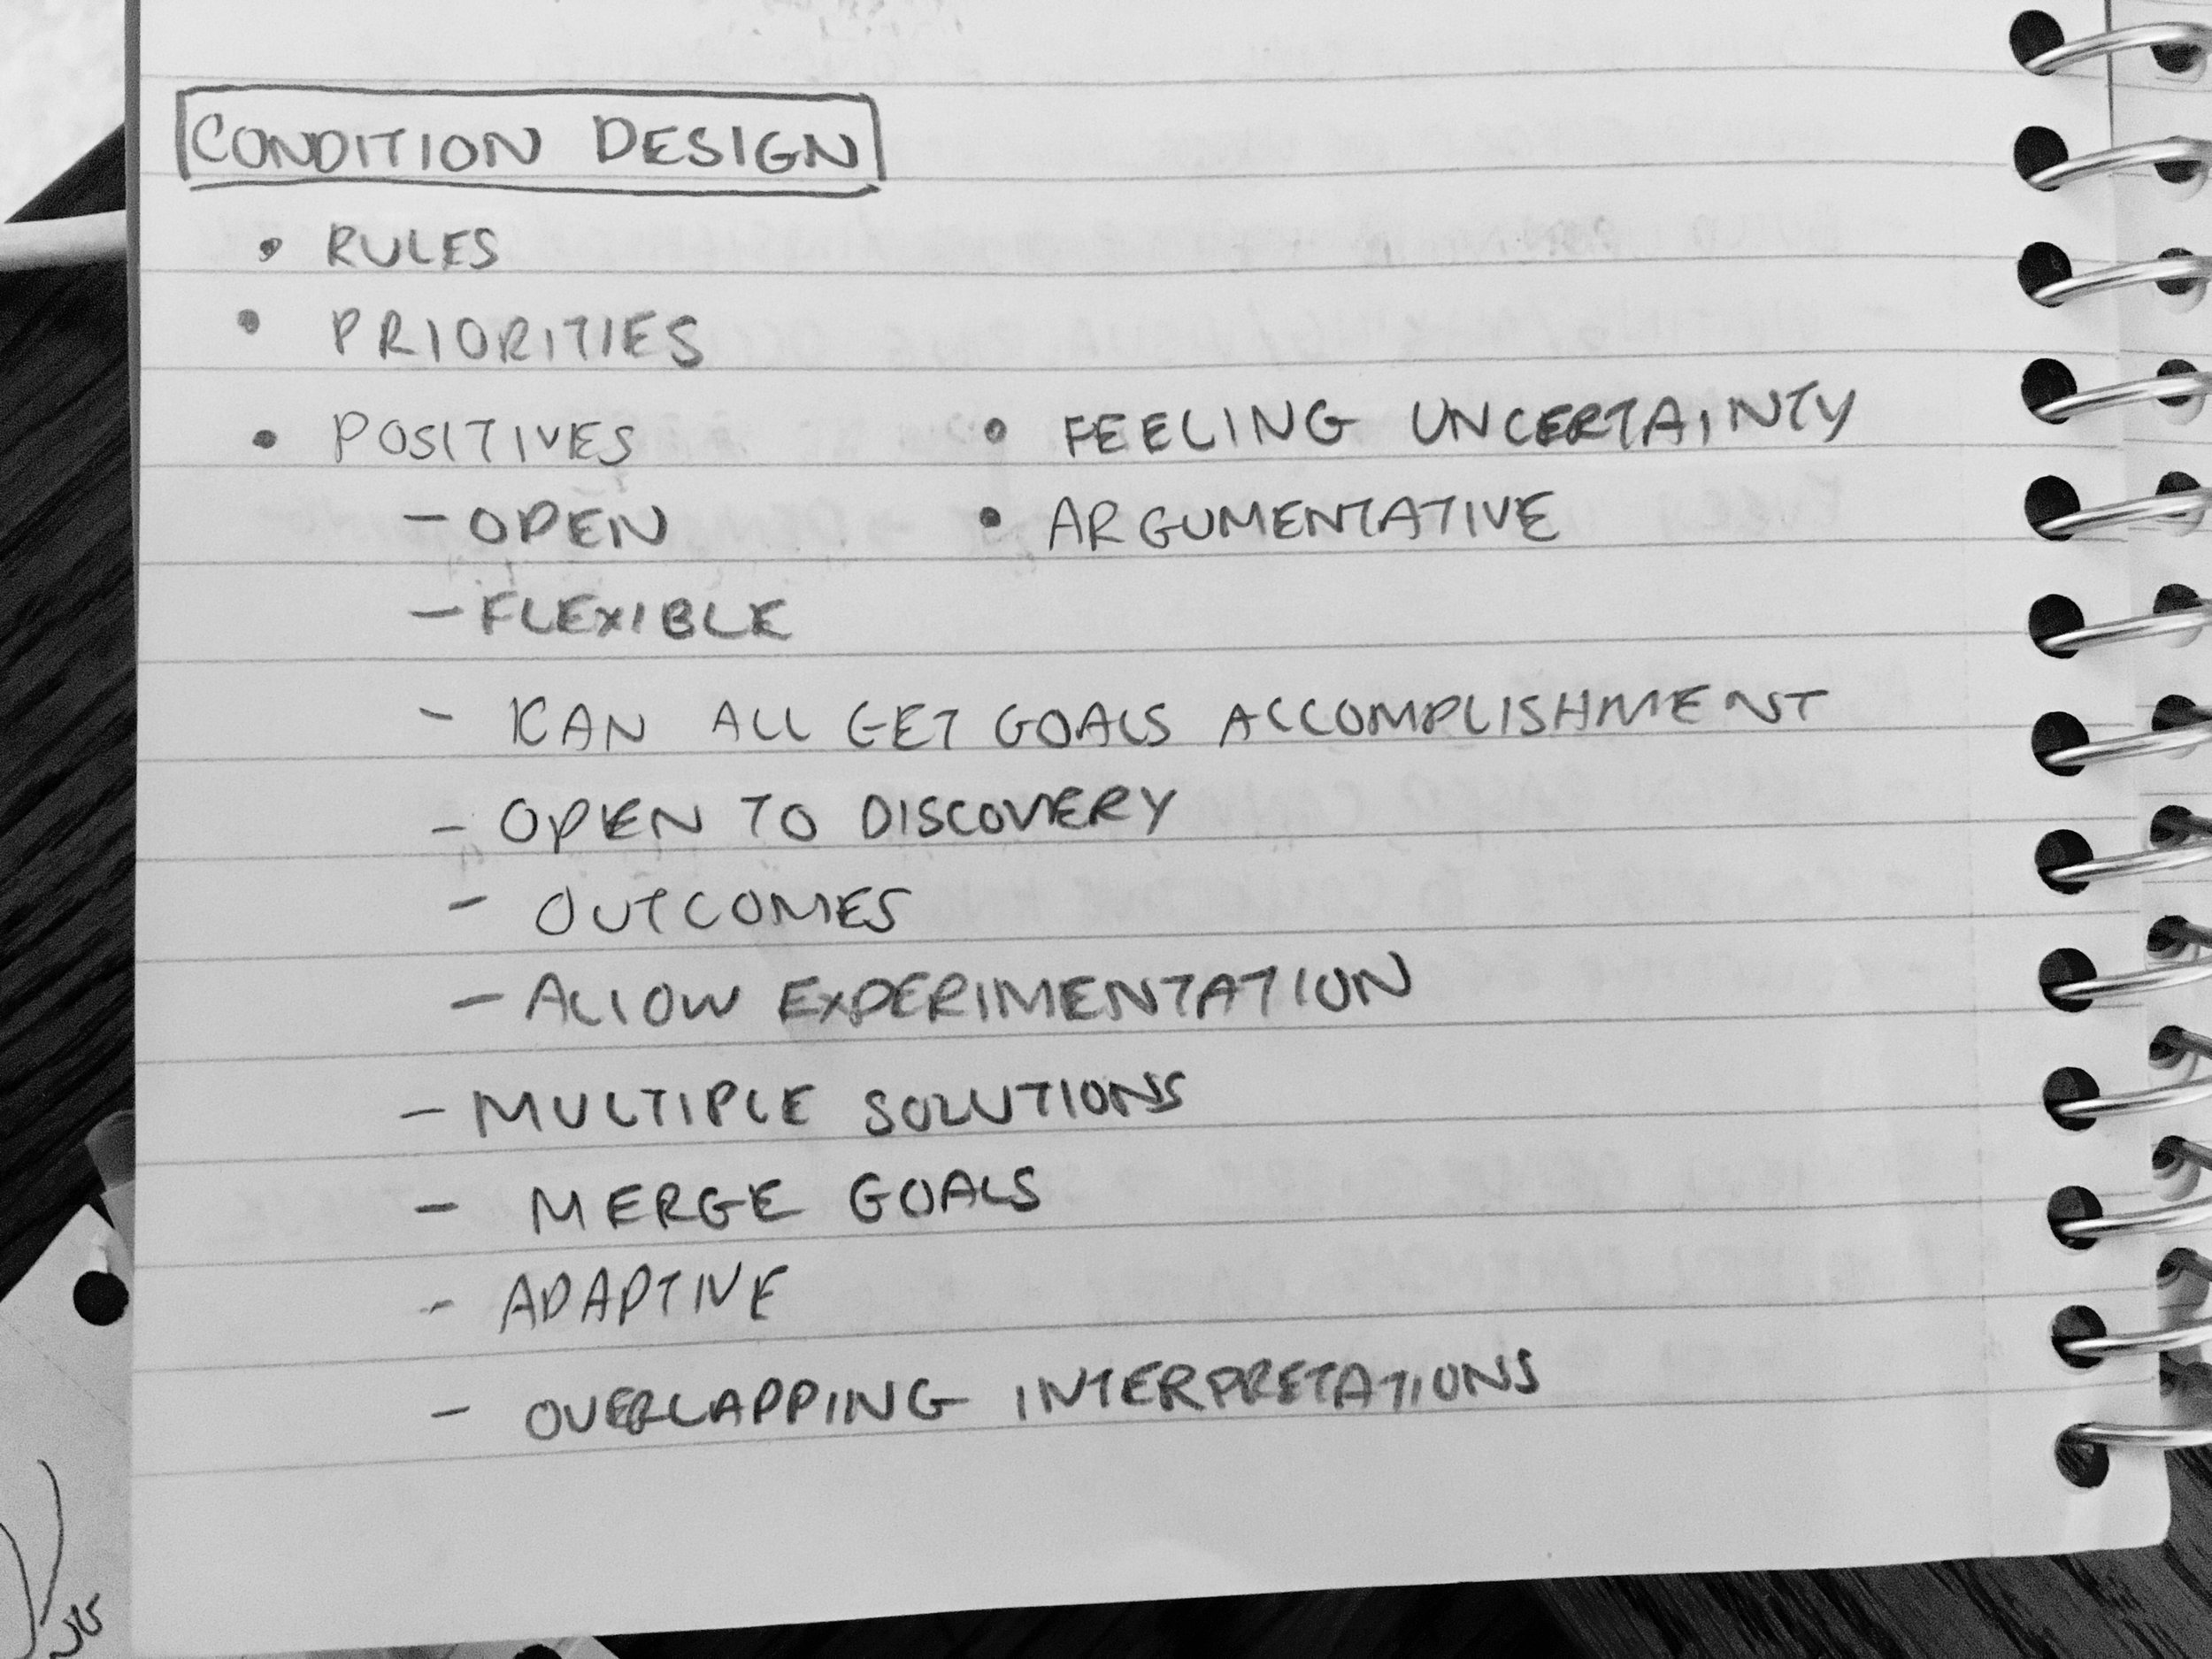 CONDITION DESIGN
• RULES
• PRIORITIES
• POSITIVES
- OPEN
- FLEXIBLE
- KAN ALL GET GOALS ACCOMPLISHMENT
- OPEN TO DISCOVERY
- OUTCOMES
- ALLOW EXPERIMENTATION
- MULTIPLE SOLUTIONS
- MERGE GOALS
- ADAPTIVE
- OVERLAPPING INTERPRETATIONS
• FEELING UNCERTAINTY
• ARGUMENTATIVE